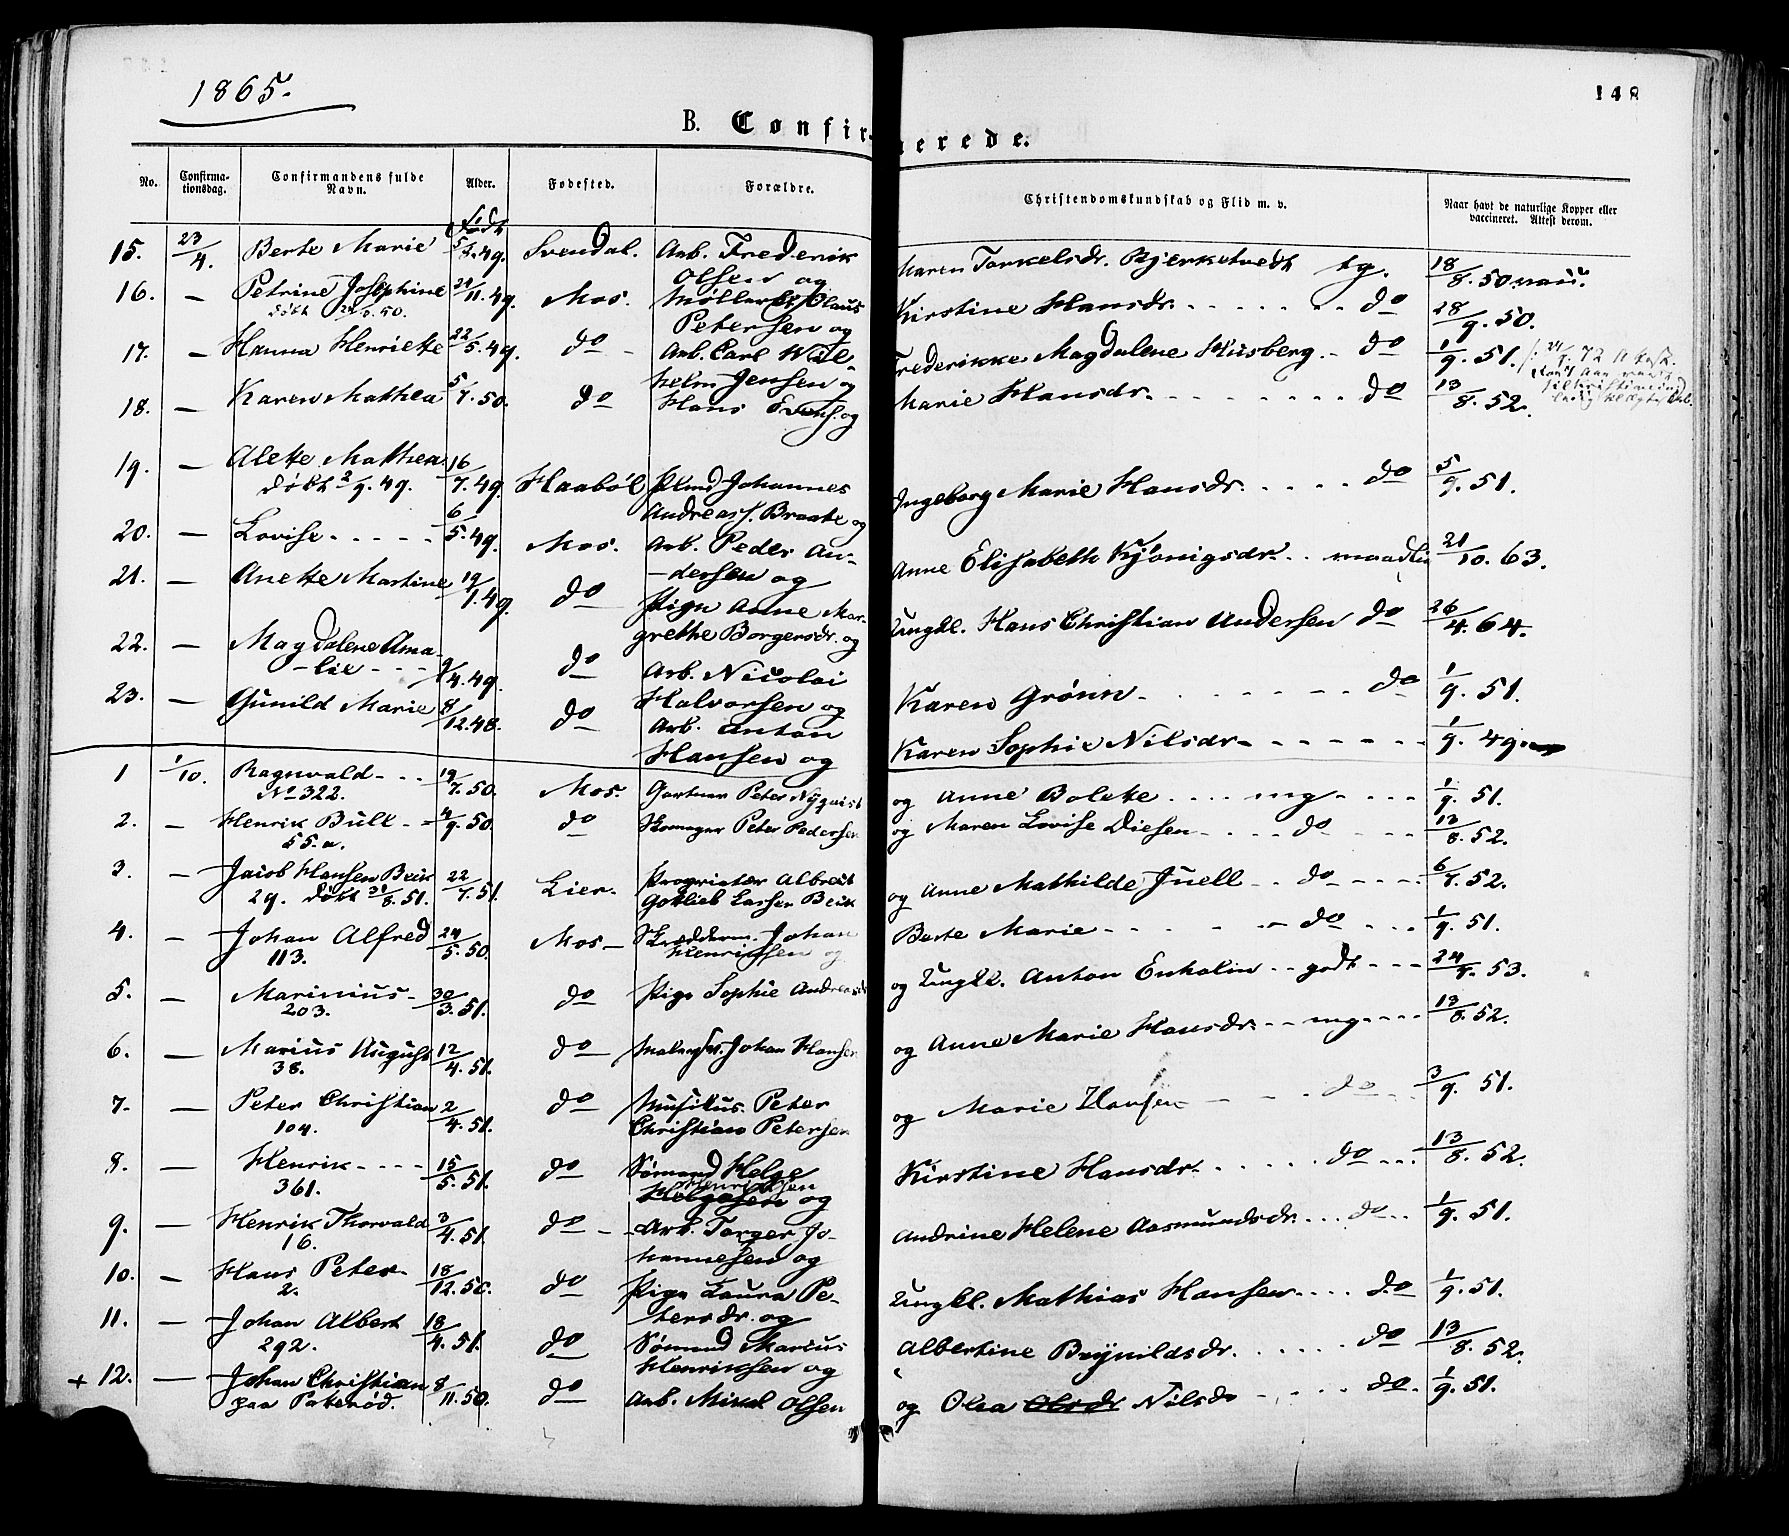 1865.
148
B. Confirmerede.
No. Confirmationsdag. Confirmandens fulde Navn. Alder. Fødested. Forældre. Christendomskundskab og Flid m. v. Naar havt de naturlige Kopper eller vaccineret. Attest derom.
Født
15. 23/4. Berte Marie 5/7.49. Svendal. Arb. Frederik Olsen og Maren Torkelsdr. Bjerketvedt tg. 18/8.50
16. — Petrine Josephine 24/11.49. Mos. Møllerk. Olaus Petersen og Kirstine Hansdr. do 28/9.50.
døbt .50.
17. — Hanna Henriette 22/5.49. do Arb. Carl Wilhelm Jensen og Frederikke Magdalene Husberg do 1/9.51.
18. — Karen Mathea 5/7.50. do Hans Evens. og Marie Hansdr. do 13/8.52.
19. — Alette Mathea 16/7.49. Haabøl Plmd Johannes Andreass. Braate og Ingeborg Marie Hansdr. do 5/9.51.
døbt 2/9.49.
20. — Lovise 6/5.49. Mos. Arb. Peder Andersen og Anne Elisabeth Kjönigsdr. maadelig 21/10.63.
21. — Anette Martine 19/1.49. do Pige Anne Margrethe Borgersdr. og Ungkl. Hans Christian Andersen do 26/4.64.
22. — Magdalene Amalie 9/4.49. do Arb. Nicolai Halvorsen og Karen Grønn do 1/9.51.
23. — Gunild Marie 8/12.48. do Arb. Anton Hansen og Karen Sophie Nilsdr 1/9.49.
1 1/10. Ragnvald 19/7.50. Mos. Gartner Peter Nyqvist og Anne Bolette mg 1/9.51.
No 322.
2. — Henrik Bull 4/9.50. do Skomager Peter Pedersen og Maren Lovise Diesen do 13/8.52.
55.a.
3. — Jacob Hansen Beck 22/7.51. Lier. Proprietær Albrecht Gotlieb Larsen Beck og Anne Mathilde Juell do 6/7.52.
29. døbt 31/8.51.
4. — Johan Alfred 24/5.50. Mos Skrædderm. Johan Henriksen og Berte Marie do 1/9.51.
113.
5. — Marinius 30/3.51. do Pige Sophie Andreasdr og Ungkl. Anton Enholm godt 24/9.53.
203.
6. — Marius August 12/4.51. do Malersv. Johan Hansen og Anne Marie Hansdr. mg 13/8.52.
38.
7. — Peter Christian 2/4.51. do Musikus Peter Christian Petersen og Marie Hansen do 3/9.51.
104.
8. — Henrik 15/5.51. do Sømand Helge Helgesen Henriksen og Kirstine Hansdr. do 13/8.52.
361.
9. — Henrik Thorvald 3/4.51. do Arb. Torger Johannesen og Andrine Helene Aasmundsdr. do 1/9.51.
16.
10. — Hans Peter 18/12.50. do Pige Laura Petersdr. og Ungkl. Mathias Hansen do 1/9.51.
2.
11. — Johan Albert 18/4.51. do Sømand Marius Henriksen og Albertine Brynildsdr. do 13/8.52.
292.
+ 12. — Johan Christian 8/11.50. do Arb. Mikal Olsen og Olea Olsdr Nilsdr do 1/9.51.
paa Paterød.